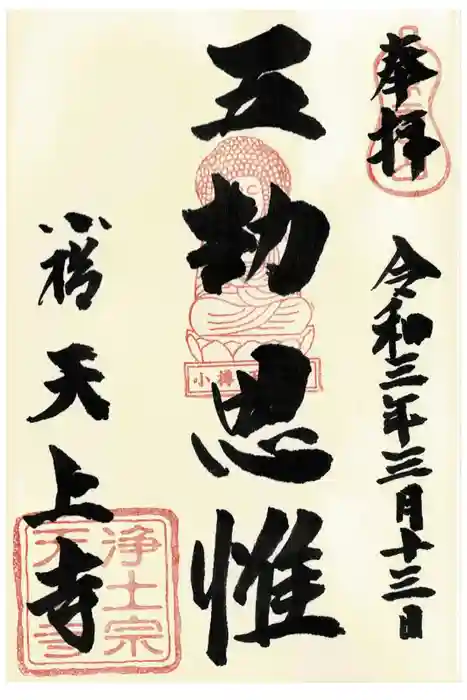 奉拝
令和三年三月十三日
五劫思惟
小樽
小樽天上寺
浄土宗